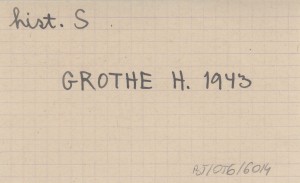 hist. S
GROTHE H. 1943
AJ/OTG/6014